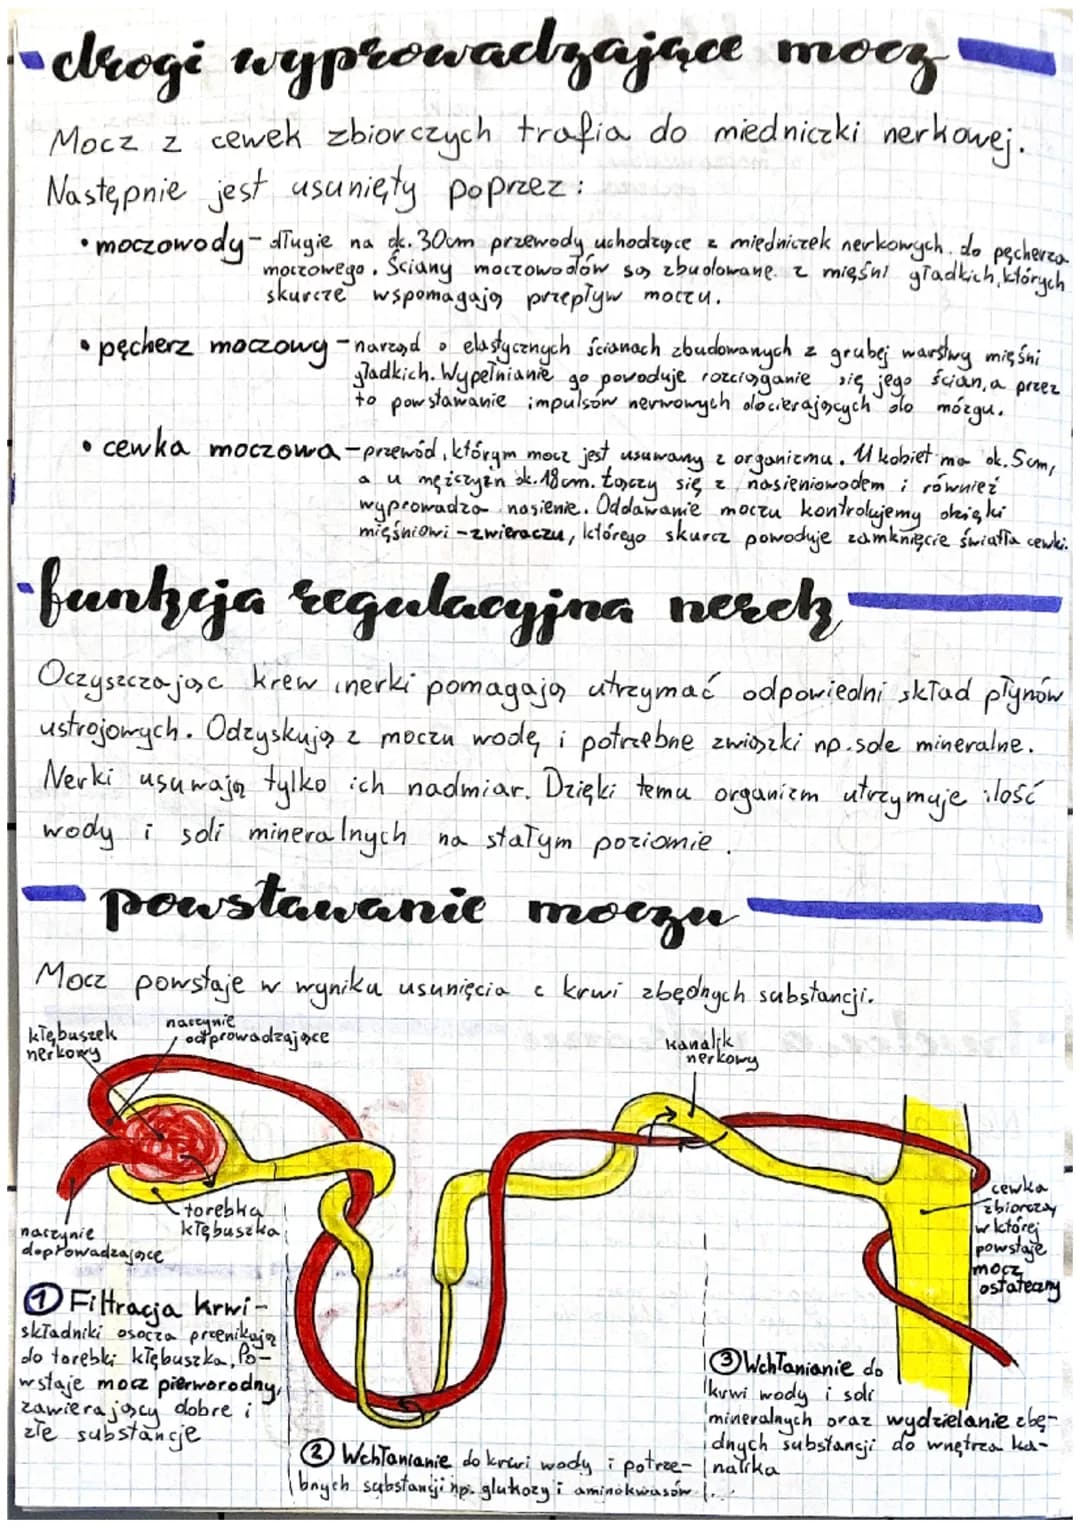 drogi wyprowadzające mocz
Mocz z cewek zbiorczych trafia do miedniczki nerkowej.
Następnie jest usunięty poprzez:
• moczowody - długie na ok. 30cm przewody uchodzące z miedniczek nerkowych do pęcherza
moczowego. Ściany moczowodów są zbudowane z mięśni gładkich, których
skurcze wspomagają przepływ moczu.
• pęcherz moczowy - narząd o elastycznych ścianach zbudowanych z grubej warstwy mięśni
gładkich. Wypełnianie go powoduje rozciąganie się jego ścian, a przez
to powstawanie impulsów nerwowych docierających do mózgu.
• cewka moczowa - przewód, którym mocz jest usuwany z organizmu. U kobiet ma ok. 5cm,
a u mężczyzn ok. 18cm. Łączy się z nasieniowodem i również
wyprowadza nasienie. Oddawanie moczu kontrolujemy dzięki
mięśniowi - zwieraczu, którego skurcz powoduje zamknięcie światła cewki.
funkcja regulacyjna nerek
Oczyszczając krew nerki pomagają utrzymać odpowiedni skład płynów
ustrojowych. Odzyskują z moczu wodę i potrzebne związki np. sole mineralne.
Nerki usuwają tylko ich nadmiar. Dzięki temu organizm utrzymuje ilość
wody i soli mineralnych na stałym poziomie.
powstawanie moczu
Mocz powstaje w wyniku usunięcia z krwi zbędnych substancji.
kłębuszek
nerkowy
naczynie
odprowadzające
kanalik
nerkowy
torebka
kłębuszka
naczynie
doprowadzające
cewka
zbiorcza,
w której
powstaje
mocz
ostateczny
① Filtracja krwi -
składniki osocza przenikają
do torebki kłębuszka. Po-
wstaje mocz pierworodny,
zawierający dobre i
złe substancje
② Wchłanianie do krwi wody i potrze-
bnych substancji np. glukozy i aminokwasów
③ Wchłanianie do
krwi wody i soli
mineralnych oraz wydzielanie zbę-
dnych substancji do wnętrza ka-
nalika